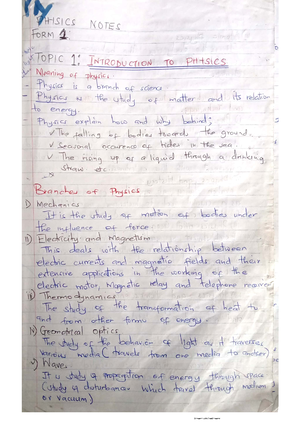 PHYSICS NOTES
FORM 1
TOPIC 1: INTRODUCTION TO PHYSICS
Meaning of physics
Physics is a branch of science
Physics is the study of matter and its relation
to energy.
Physics explain how and why behind;
✓ The falling of bodies towards the ground.
✓ Seasonal occurence of tides in the sea
✓ The rising up of a liquid through a drinking
straw etc
Branches of Physics
i) Mechanics
It is the study of motion of bodies under
the influence of force
ii) Electricity and magnetism
This deals with the relationship between
electric currents and magnetic fields and their
extensive applications in the working of the
electric motor, magnetic relay and telephone receiver
iii) Thermodynamics
The study of the transformation of heat to
and from other forms of energy.
iv) Geometrical optics
The study of the behavior of light as it traverses
various media (travels from one media to another)
v) Waves
It is study of propagation of energy through space
(study of disturbances which travel through
or vacuum)